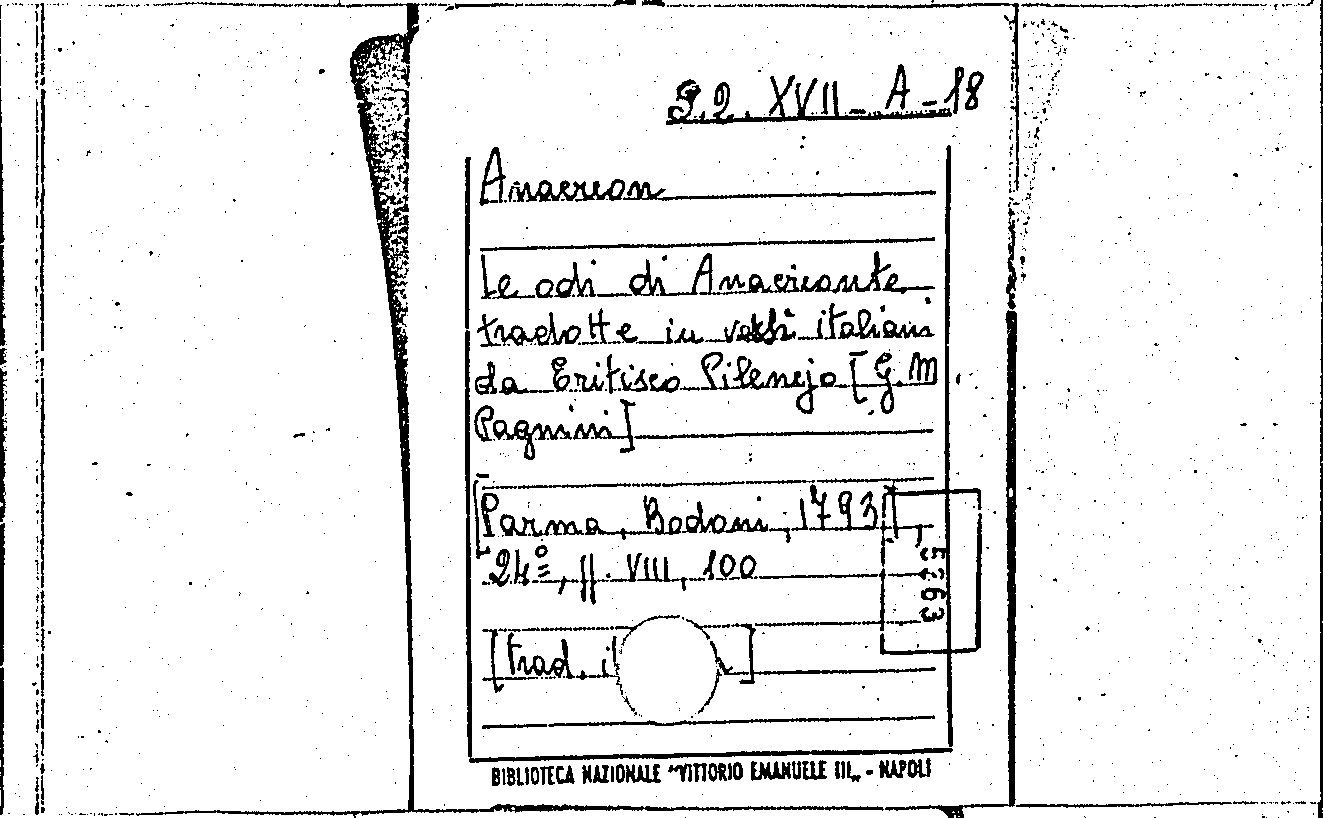 S.Q. XVII - A - 18
Anacreon
Le odi di Anacreonte
tradotte in versi italiani
da Eritisco Pilenejo [G.M.
Pagnini]
[Parma, Bodoni, 1793],
24º, ff. VIII, 100
[trad. it ]
5263
BIBLIOTECA NAZIONALE "VITTORIO EMANUELE III„ - NAPOLI